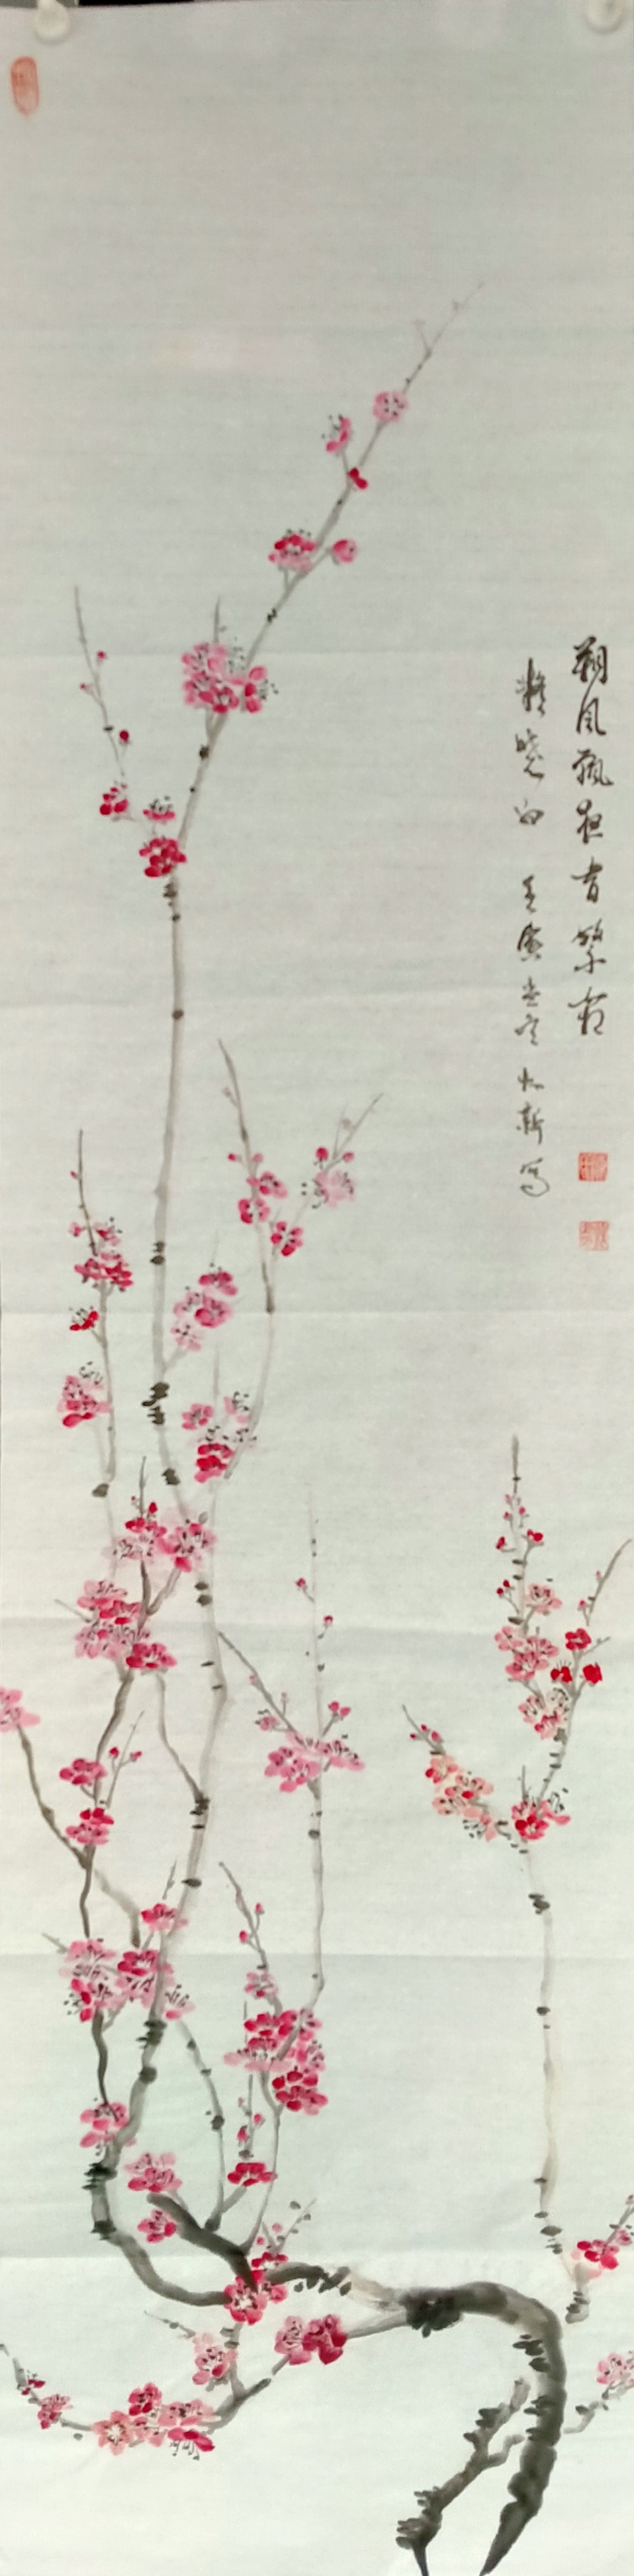 朔风飘夜香繁霜
滋晓白 壬寅 新写